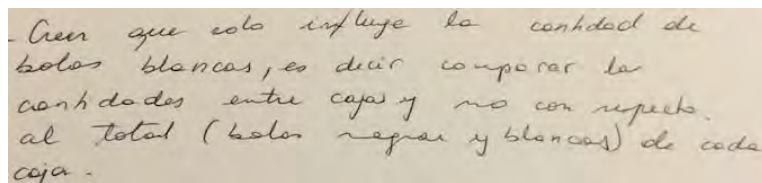 - Creen que solo influye la cantidad de
bolas blancas, es decir comparar la
cantidades entre cajas y no con respecto.
al total (bolas negras y blancas) de cada
caja.